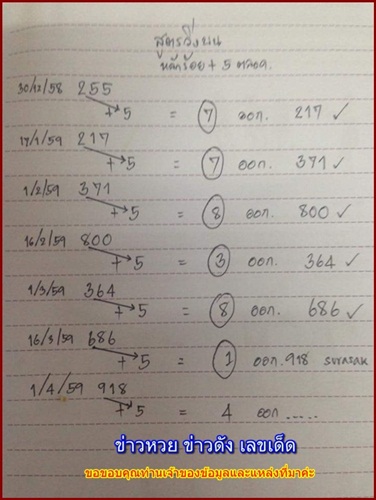 สูตรวิ่งบน
หลักร้อย + 5 ตลอด.
30/12/58 255
+5 = 7 ออก. 217 ✓
17/1/59 217
+5 = 7 ออก. 371 ✓
1/2/59 371
+5 = 8 ออก 800 ✓
16/2/59 800
+5 = 3 ออก. 364 ✓
1/3/59 364
+5 = 8 ออก 686 ✓
16/3/59 686
+5 = 1 ออก. 918
1/4/59 918
+5 = 4 ออก .....
ข่าวหวย ข่าวดัง เลขเด็ด
ขอขอบคุณท่านเจ้าของข้อมูลและแหล่งที่มาค่ะ